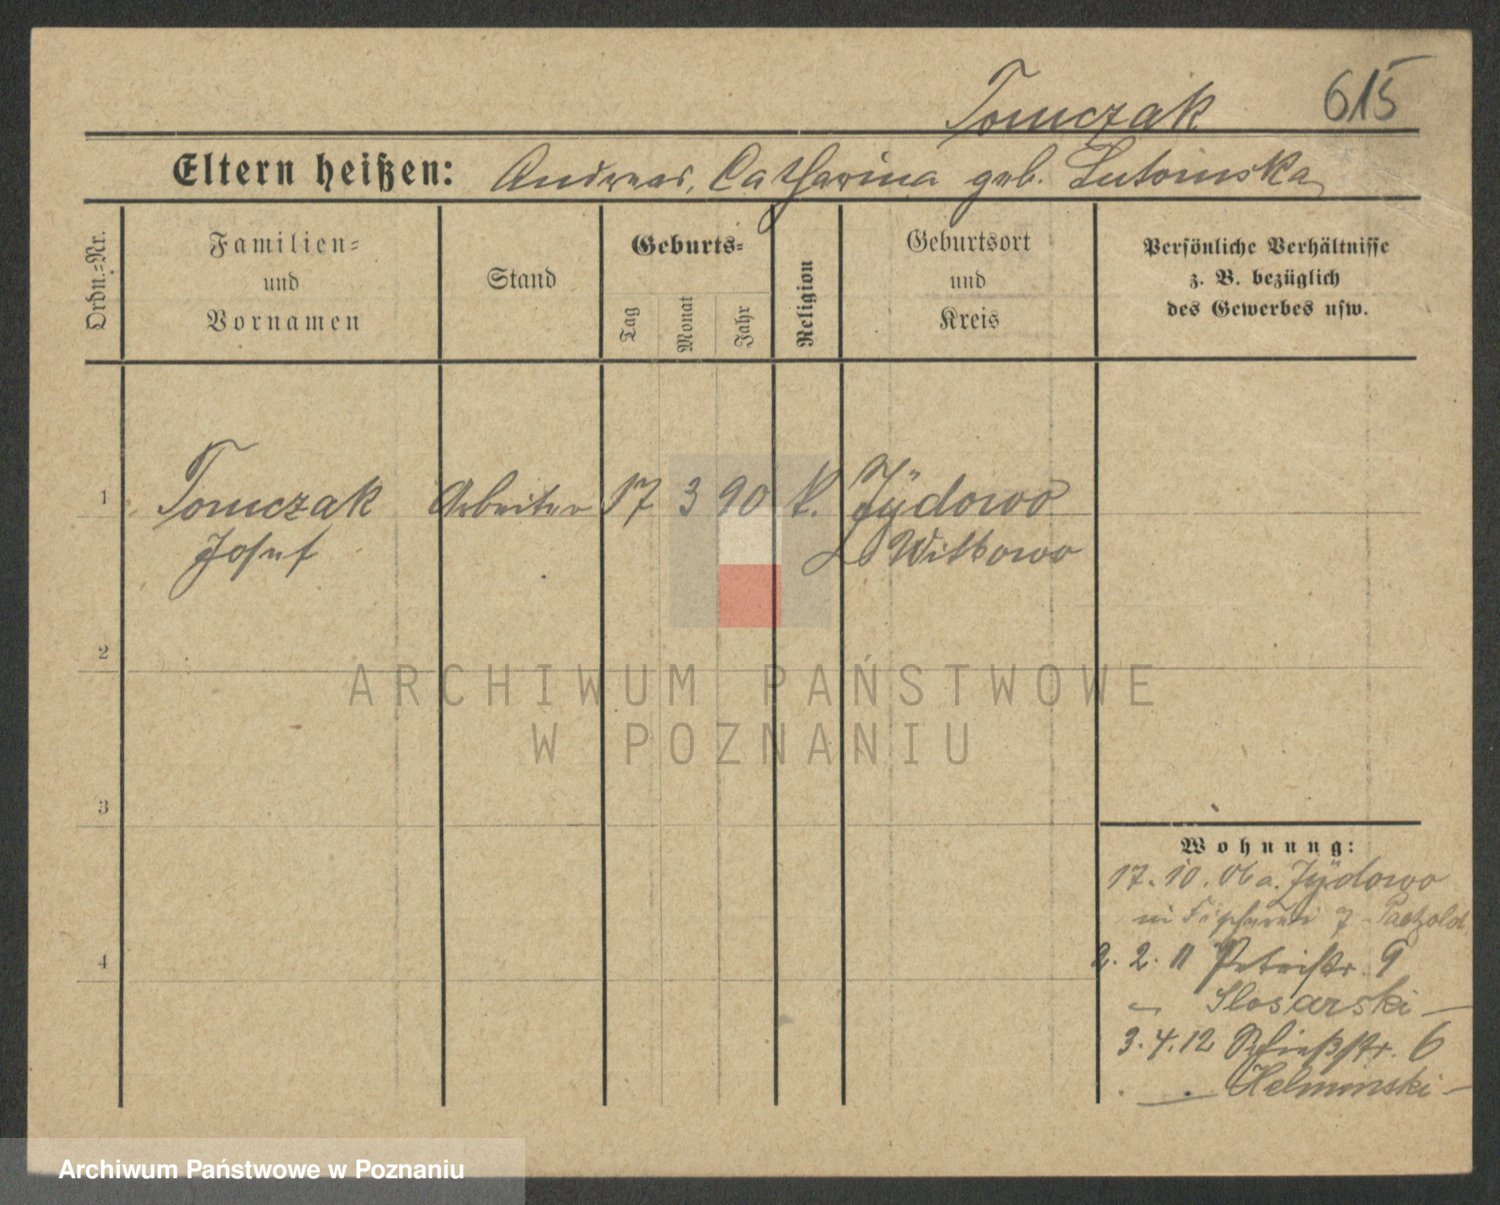 Tomczak 615
Eltern heißen: Andreas, Catharina geb. Lutomska
Ordn.=Nr.
Familien=
und
Vornamen
Stand
Geburts=
Tag
Monat
Jahr
Religion
Geburtsort
und
Kreis
Persönliche Verhältnisse
z. B. bezüglich
des Gewerbes usw.
1 Tomczak Arbeiter 17 3 90 k. Zÿdowo
Josef Witkowo
2
ARCHIWUM PAŃSTWOWE
W POZNANIU
3
Wohnung:
17. 10. 06 a. Zÿdowo
4
2. 2. 11 Petristr. 9
Slosarski
3. 4. 12 6
Helminski
Archiwum Państwowe w Poznaniu